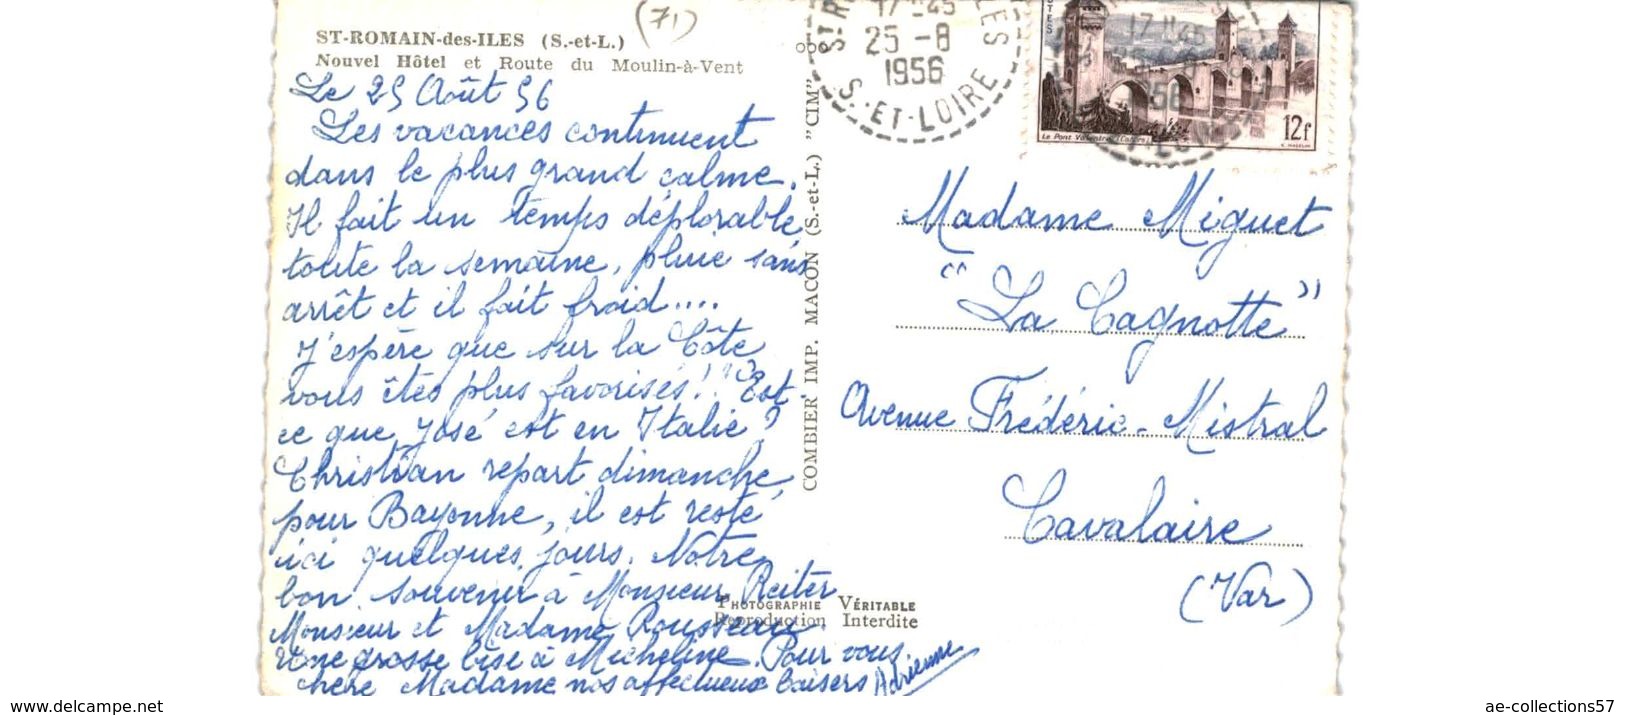 (71)
ST-ROMAIN-des-ILES (S.-et-L.)
Nouvel Hôtel et Route du Moulin-à-Vent
Le 25 Août 56
Les vacances continuent
dans le plus grand calme.
Il fait un temps déplorable
toute la semaine, pluie sans
arrêt et il fait froid....
J'espère que sur la Côte
vous êtes plus favorisés!! Est
ce que José est en Italie?
Christian repart dimanche
pour Bayonne, il est resté
ici quelques jours. Notre
bon souvenir à Monsieur Reiter
Monsieur et Madame Rousseau
Une grosse bise à Micheline. Pour vous
chère Madame nos affectueux baisers Adrienne
COMBIER IMP. MACON (S.-et-L.) "CIM"
PHOTOGRAPHIE VÉRITABLE
Reproduction Interdite
17H45
25-8
1956
S.-ET-LOIRE
17H45
12f
Madame Miguet
"La Cagnotte"
Avenue Frédéric-Mistral
Cavalaire
(Var)
www.delcampe.net
ae-collections57